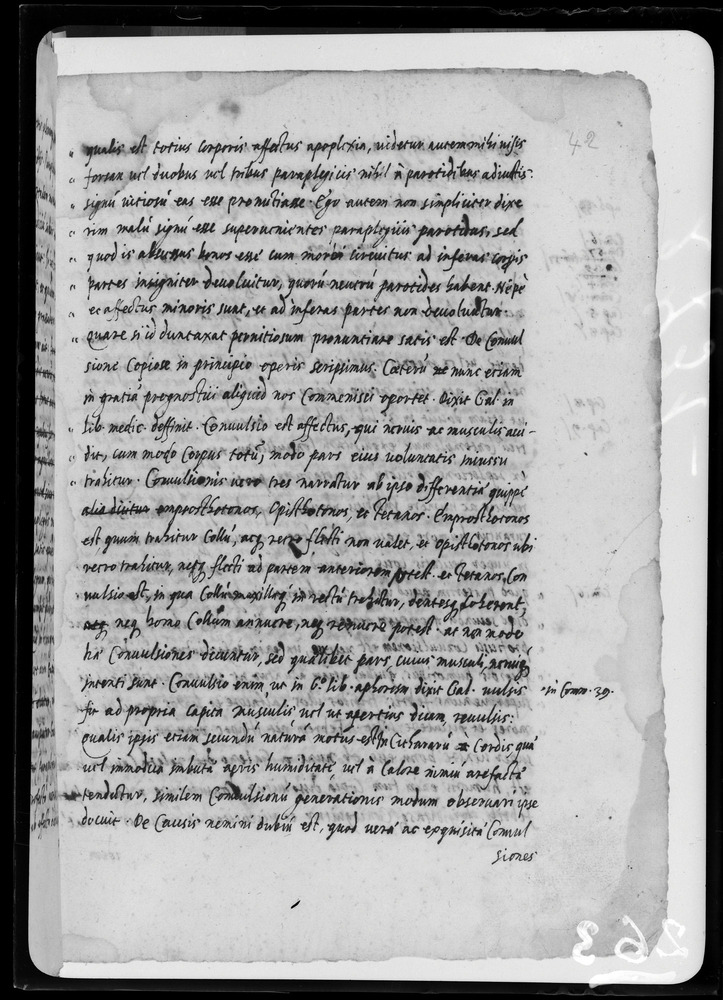 42
qualis est totius corporis affectus apoplexia, videtur autem mihi nisi
forsan vel duobus vel tribus paraplegicis nihil à parotidibus adiutis:
signũ vitiosũ eas esse pronũtiasse. Ego autem non simpliciter dixe
rim malũ signũ esse supervenientes paraplegiis parotidas, sed
quod is abcessus bonos esse cum morbi circuitus ad inferas corpis
partes insigniter devolvitur, quorũ neutrũ parotides habent. Nẽpè
et affectus minoris sunt, et ad inferas partes non devolvũtur.
quare si id duntaxat pernitiosum pronuntiare satis est. De Convul
sione copiose in principio operis scripsimus. Cæterũ ne nunc etiam
in gratiã prognostici aliquid nos commenisci oportet. Dixit Gal. in
lib. medic. deffinit. Convulsio est affectus, qui nervis ac musculis acci-
dit, cum modo corpus totũ, modo pars eius voluntatis iniussu
trahitur. Convulsionis vero tres narratur ab ipso differentiã quippè
emprosthotonos, Opisthotonos, et Tetanos. Emprosthotonos
est quum trahitur collũ, atq retro flecti non valet, et opisthotonos ubi
retro trahitur, neq flecti ad partem anteriorem potest. et Tetanos, Con
vulsio est, in qua collũ maxillaq in rectũ trahũtur, dentesq cohærent,
neq homo collum annuere, neq renuere potest. at non modo
hã Convulsiones dicuntur, sed quælibet pars, cuius musculi, neruiq
intenti sunt. Convulsio enim, ut in 6.º lib. aphorism dixit Gal. vulsis
in Comm. 39.
fit ad propria capita musculis vel ut apertius dicam, revulsis:
qualis ipsis etiam secundũ naturã motus est In Cithararũ Cordis quã
vel immodica imbutã aeris humiditate vel à calore nimiũ arefactã
tenduntur, similem Convulsionũ generationis modum observari ipse
docuit. De Causis nemini dubiũ est, quod verã ac exquisitã Convul
siones
263